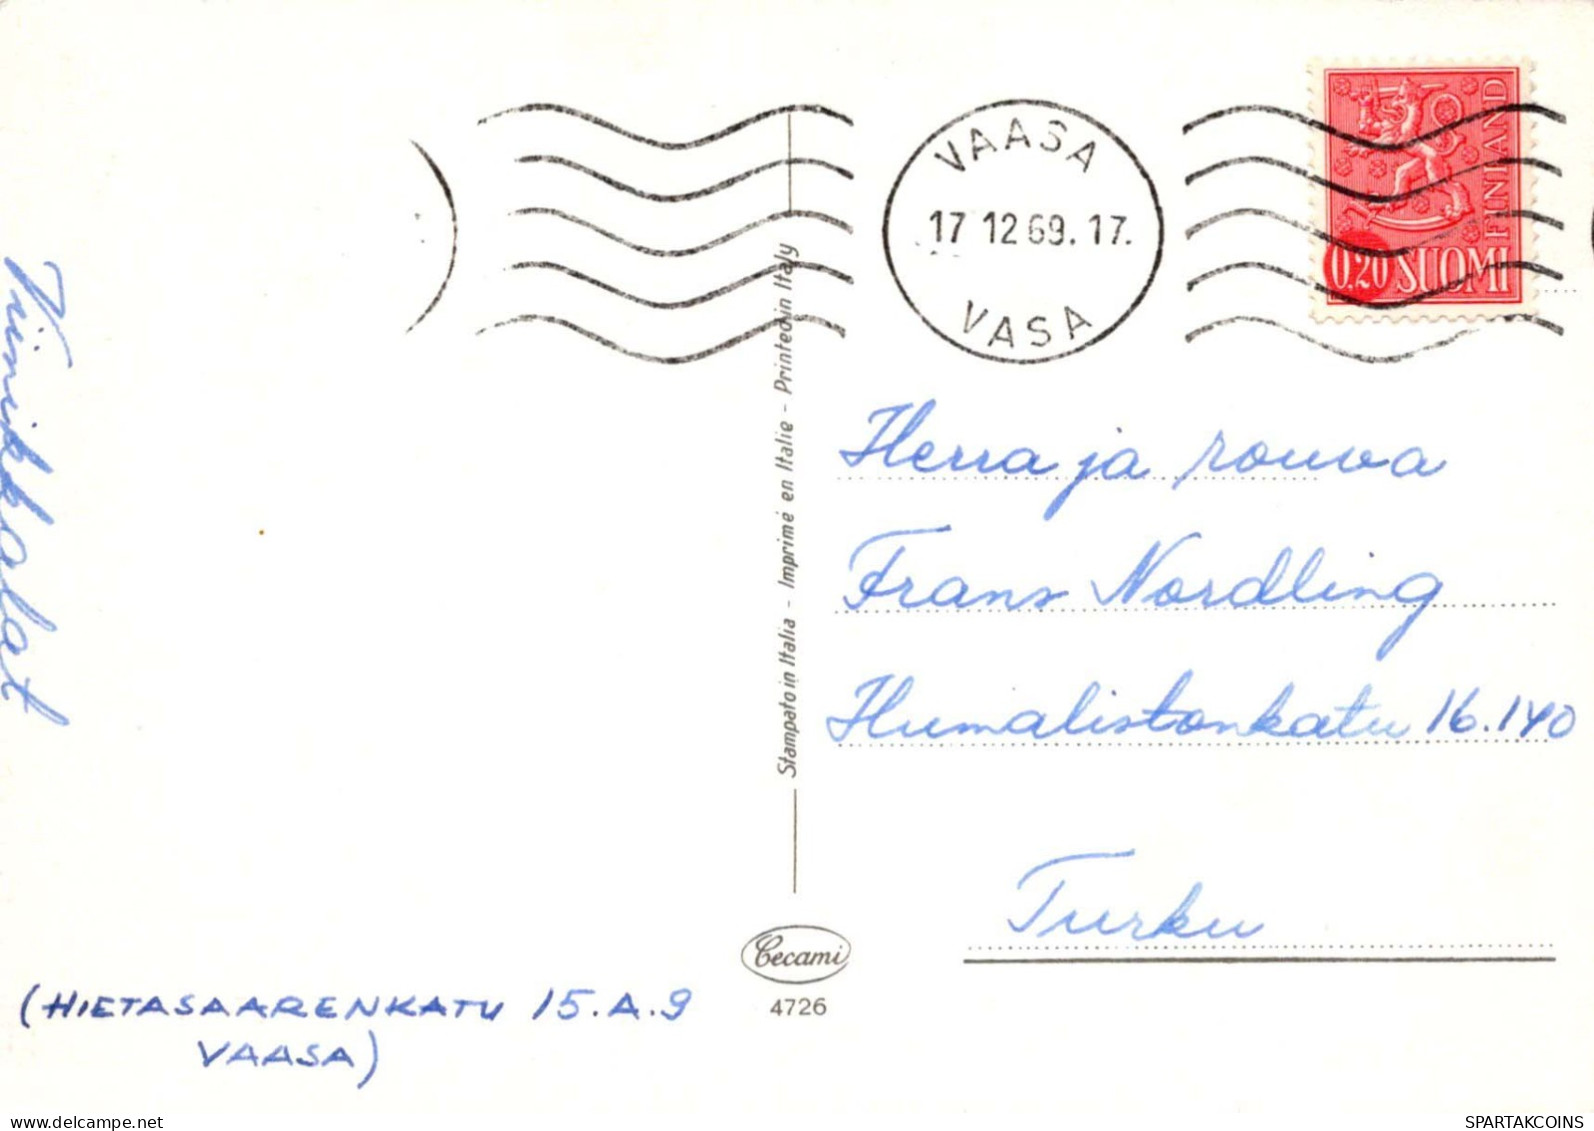 VAASA
17 12 69. 17.
VASA
FINLAND
0,20 SUOMI
Herra ja rouva
Frans Nordling
Humalistonkatu 16.
Turku
Stampato in Italia - Imprimé en Italie - Printed in Italy
Cecami
4726
(HIETASAARENKATU 15.A.9
VAASA)
hub-delcampe.net
SPARTAKCOINS